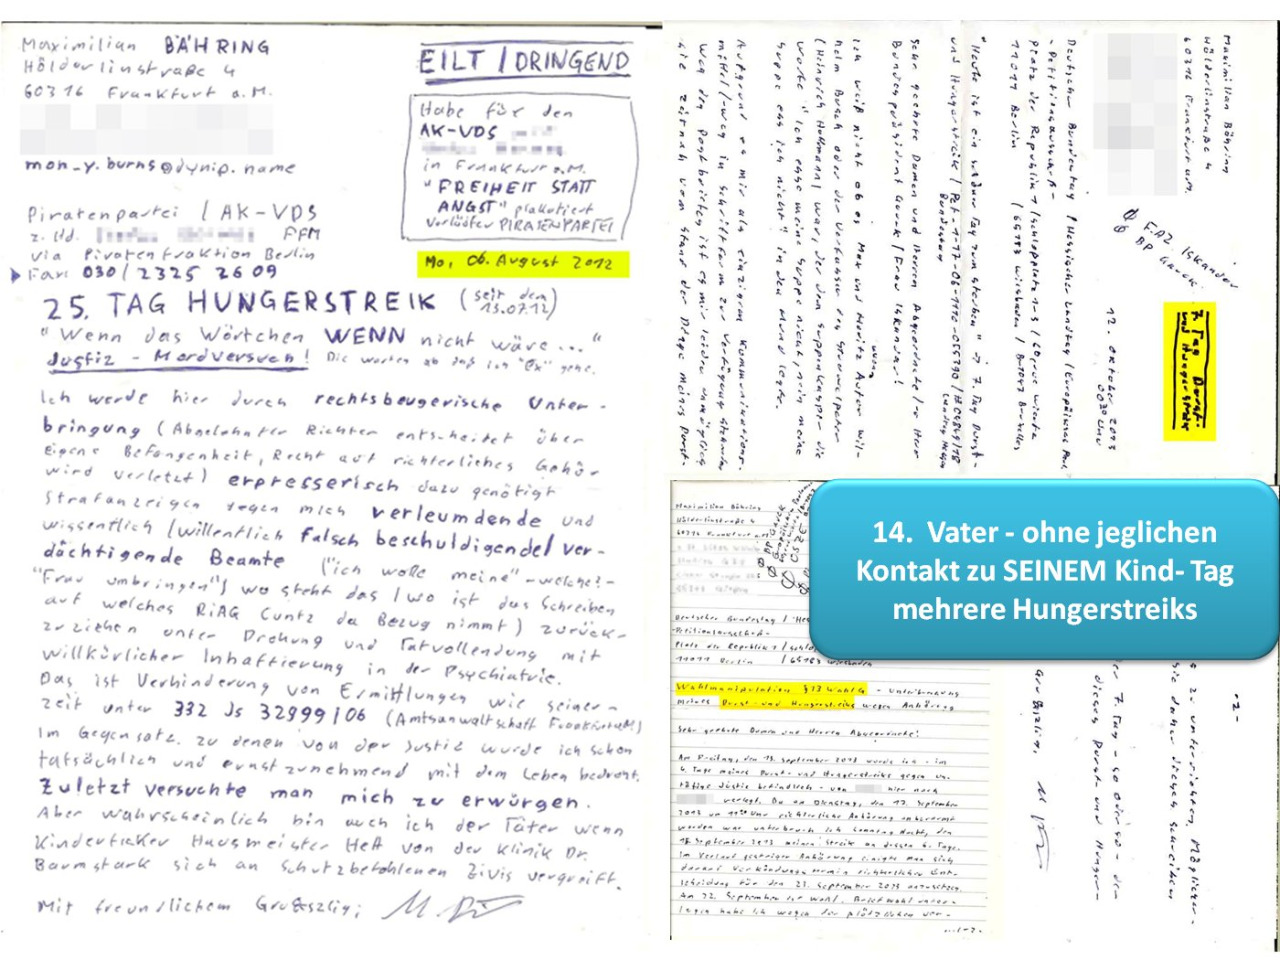 Maximilian BÄHRING
Hölderlinstraße 4
60316 Frankfurt a.M.
mon_y.burns@dynip.name
EILT / DRINGEND
Habe für den
AK-VDS
in Frankfurt a.M.
"FREIHEIT STATT
ANGST" plakatiert
Verläßter PIRATENPARTEI
Mo, 06. August 2012
Piratenpartei / AK-VDS
z. Hd. FFM
via Piratenfraktion Berlin
Fax: 030/2325 2609
25. TAG HUNGERSTREIK (seit dem
13.07.12)
"Wenn das Wörtchen WENN nicht wäre..."
Justiz - Mordversuch! Die warten ab daß ich "Ex" gehe.
Ich werde hier durch rechtsbeugerische Unter-
bringung (Abgelehnter Richter entscheitet über
eigene Befangenheit, Recht auf richterliches Gehör
wird verletzt) erpresserisch dazu genötigt
Strafanzeigen gegen mich verleumdende und
wissentlich/willentlich falsch beschuldigende/ver-
dächtigende Beamte ("ich wolle meine" -welche?-
"Frau umbringen") wo steht das/wo ist das Schreiben
auf welches RiAG Cuntz da Bezug nimmt) zurück-
zuziehen unter Drohung und Tatvollendung mit
willkürlicher Inhaftierung in der Psychiatrie.
Das ist Verhinderung von Ermittlungen wie seiner-
zeit unter 332 Js 32999/06 (Amtsanwaltschaft Frankfurt a.M)
Im Gegensatz zu denen von der Justiz wurde ich schon
tatsächlich und ernstzunehmend mit dem Leben bedroht.
Zuletzt versuchte man mich zu erwürgen.
Aber wahrscheinlich bin auch ich der Täter wenn
Kinderficker Hausmeister Heft von der Klinik Dr.
Baumstark sich an Schutzbefohlenen Zivis vergreift.
Mit freundlichem Gru&szlig;
Maximilian Bähring
Hölderlinstraße 4
60316 Frankfurt a.M.
FAZ Iskandar
BP Gauck
7. Tag Durst-
und Hungerstreik
12. Oktober 2013
00:30 Uhr
Deutscher Bundestag / Hessischer Landtag / Europäisches Par.
- Petitionsausschuß -
Platz der Republik 1 / Schloßplatz 1-3 / 60 rue Wiertz
11011 Berlin / 65183 Wiesbaden / B-1047 Brüssel
"Heute ist ein guter Tag zum sterben" -> 7. Tag Durst-
und Hungerstreik / Pet 1-17-06-110-055790 /
Bundestag Landtag Hessen
Sehr geehrte Damen und Herren Abgeordnete/r Herr
Bundespräsident Gauck / Frau Iskandar!
Ich weiß nicht ob es Max und Moritz Autor Wil-
helm Busch oder der Verfasser des Struwwelpeter
(Heinrich Hoffmann) war, der dem Suppenkasper die
Worte "Ich esse meine Suppe nicht, nein meine
Suppe ess ich nicht!" in den Mund legte.
Aufgrund es mir als einzigem Kommunikations-
mittel/-weg in Schriftform zur Verfügung stehenden
Weg des Postbriefes ist es mir leider unmöglich
Sie zeitnah vom Stand der Dinge meines Durst-
14. Vater - ohne jeglichen
Kontakt zu SEINEM Kind- Tag
mehrere Hungerstreiks
Maximilian Bähring
Hölderlinstraße 4
60316 Frankfurt a.M.
BP Gauck
OSZE
Deutscher Bundestag
-Petitionsausschuß-
Platz der Republik 1
11011 Berlin / 65183 Wiesbaden
Wahlmanipulation - Unterbrechung
meines Durst- und Hungerstreiks wegen Anhörung
Sehr geehrte Damen und Herren Abgeordnete!
Am Freitag, den 13. September 2013 wurde ich - im
4. Tage meines Durst- und Hungerstreiks gegen un-
tätige Justiz befindlich - von hier nach
verlegt. Da am Dienstag, den 17. September
2013 um richterliche Anhörung anberaumt
worden war unterbrach ich Sonntag Nacht, den
September 2013 meinen Streik an dessen 6. Tage.
Im Verlauf gestriger Anhörung einigte man sich
darauf Verkündungstermin richterlicher Ent-
scheidung für den 23. September 2013 anzusetzen.
Am 22. September ist Wahl. Briefwahl
habe ich wegen der plötzlichen ver-
-2-
zu unterrichten. Möglicher-
Sie daher dieses Schreiben
7. Tag - so oder so - dem
dieses Durst- und Hunger-
Gru&szlig;